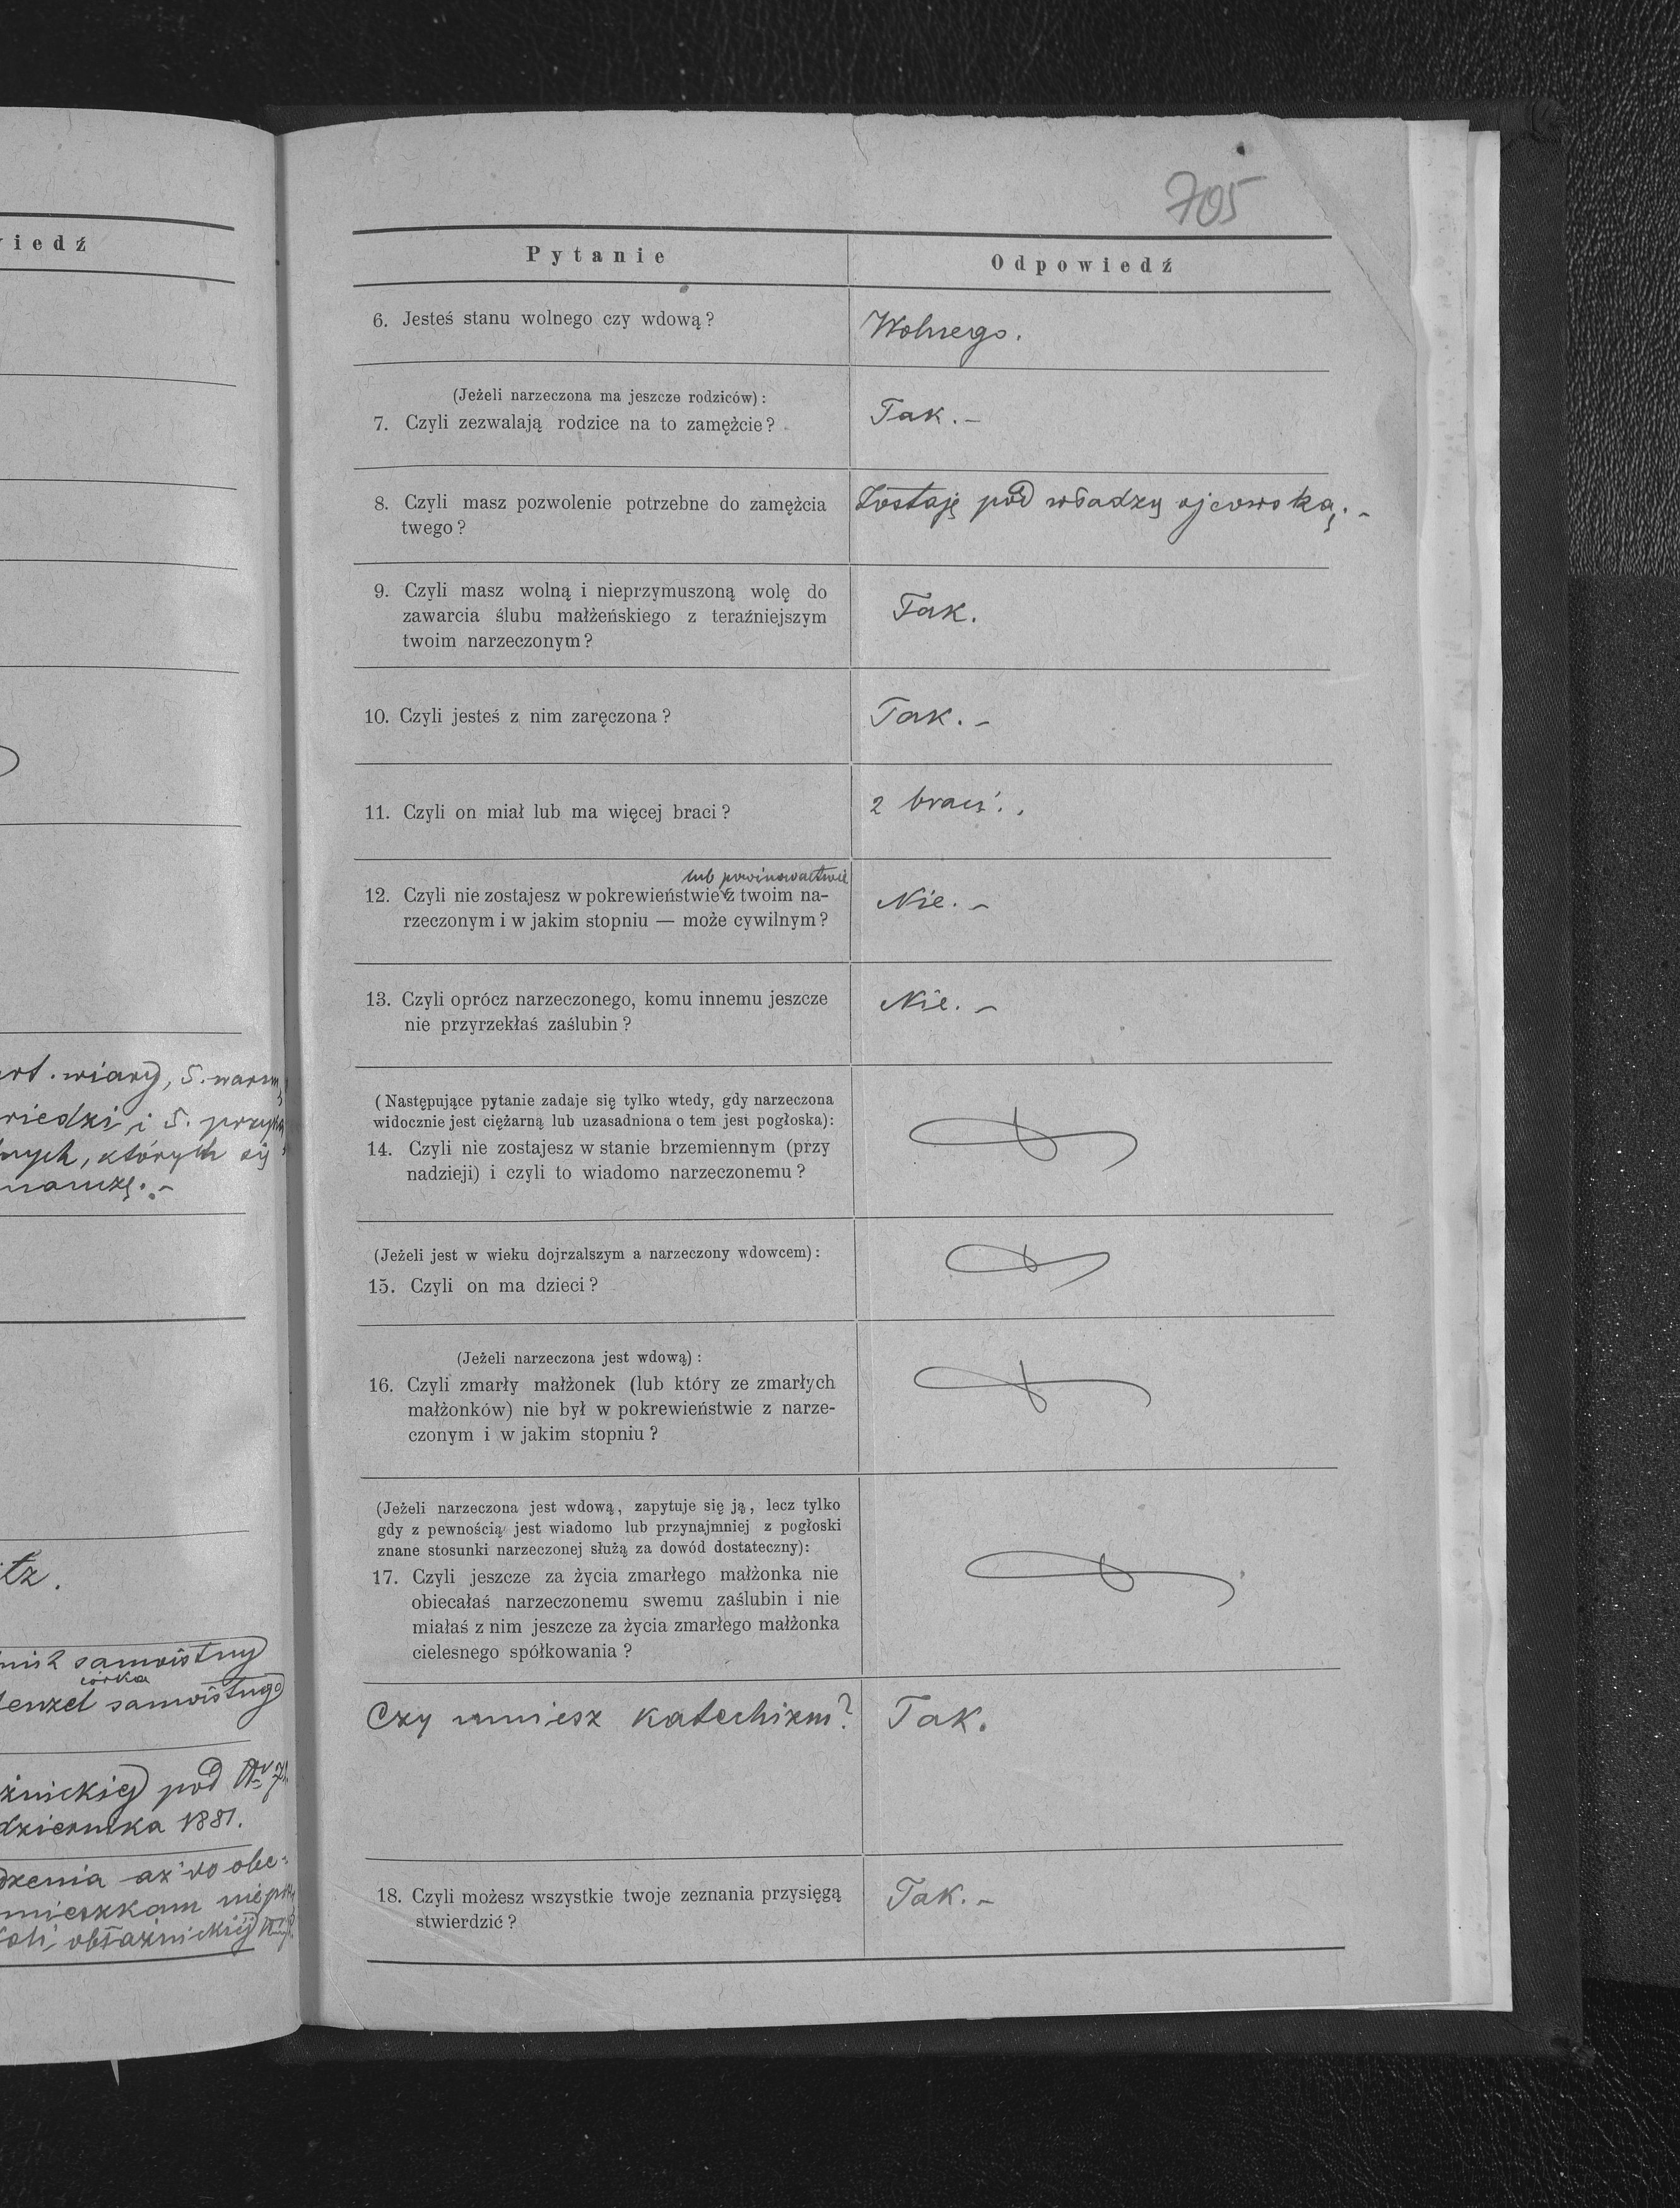 iedź
art. wiary, 5. warun
wiedzi i 5. przyka
nych, których się
nauczę. -
tz.
nik samoistny
córka
enzel samoistnego
źnickiej pod Nr 71
dziernika 1881.
dzenia aż do obe-
mieszkam
obłaźnickiej
705
Pytanie
Odpowiedź
6. Jesteś stanu wolnego czy wdową?
Wolnego.
(Jeżeli narzeczona ma jeszcze rodziców):
7. Czyli zezwalają rodzice na to zamężcie?
Tak. -
8. Czyli masz pozwolenie potrzebne do zamężcia
twego?
Zostaję pod władzą ojcowską. -
9. Czyli masz wolną i nieprzymuszoną wolę do
zawarcia ślubu małżeńskiego z teraźniejszym
twoim narzeczonym?
Tak.
10. Czyli jesteś z nim zaręczona?
Tak. -
11. Czyli on miał lub ma więcej braci?
2 braci.
lub powinowactwie
12. Czyli nie zostajesz w pokrewieństwie z twoim na-
rzeczonym i w jakim stopniu — może cywilnym?
Nie. -
13. Czyli oprócz narzeczonego, komu innemu jeszcze
nie przyrzekłaś zaślubin?
Nie. -
(Następujące pytanie zadaje się tylko wtedy, gdy narzeczona
widocznie jest ciężarną lub uzasadniona o tem jest pogłoska):
14. Czyli nie zostajesz w stanie brzemiennym (przy
nadzieji) i czyli to wiadomo narzeczonemu?
(Jeżeli jest w wieku dojrzalszym a narzeczony wdowcem):
15. Czyli on ma dzieci?
(Jeżeli narzeczona jest wdową):
16. Czyli zmarły małżonek (lub który ze zmarłych
małżonków) nie był w pokrewieństwie z narze-
czonym i w jakim stopniu?
(Jeżeli narzeczona jest wdową, zapytuje się ją, lecz tylko
gdy z pewnością jest wiadomo lub przynajmniej z pogłoski
znane stosunki narzeczonej służą za dowód dostateczny):
17. Czyli jeszcze za życia zmarłego małżonka nie
obiecałaś narzeczonemu swemu zaślubin i nie
miałaś z nim jeszcze za życia zmarłego małżonka
cielesnego spółkowania?
Czy umiesz katechizm?
Tak.
18. Czyli możesz wszystkie twoje zeznania przysięgą
stwierdzić?
Tak. -